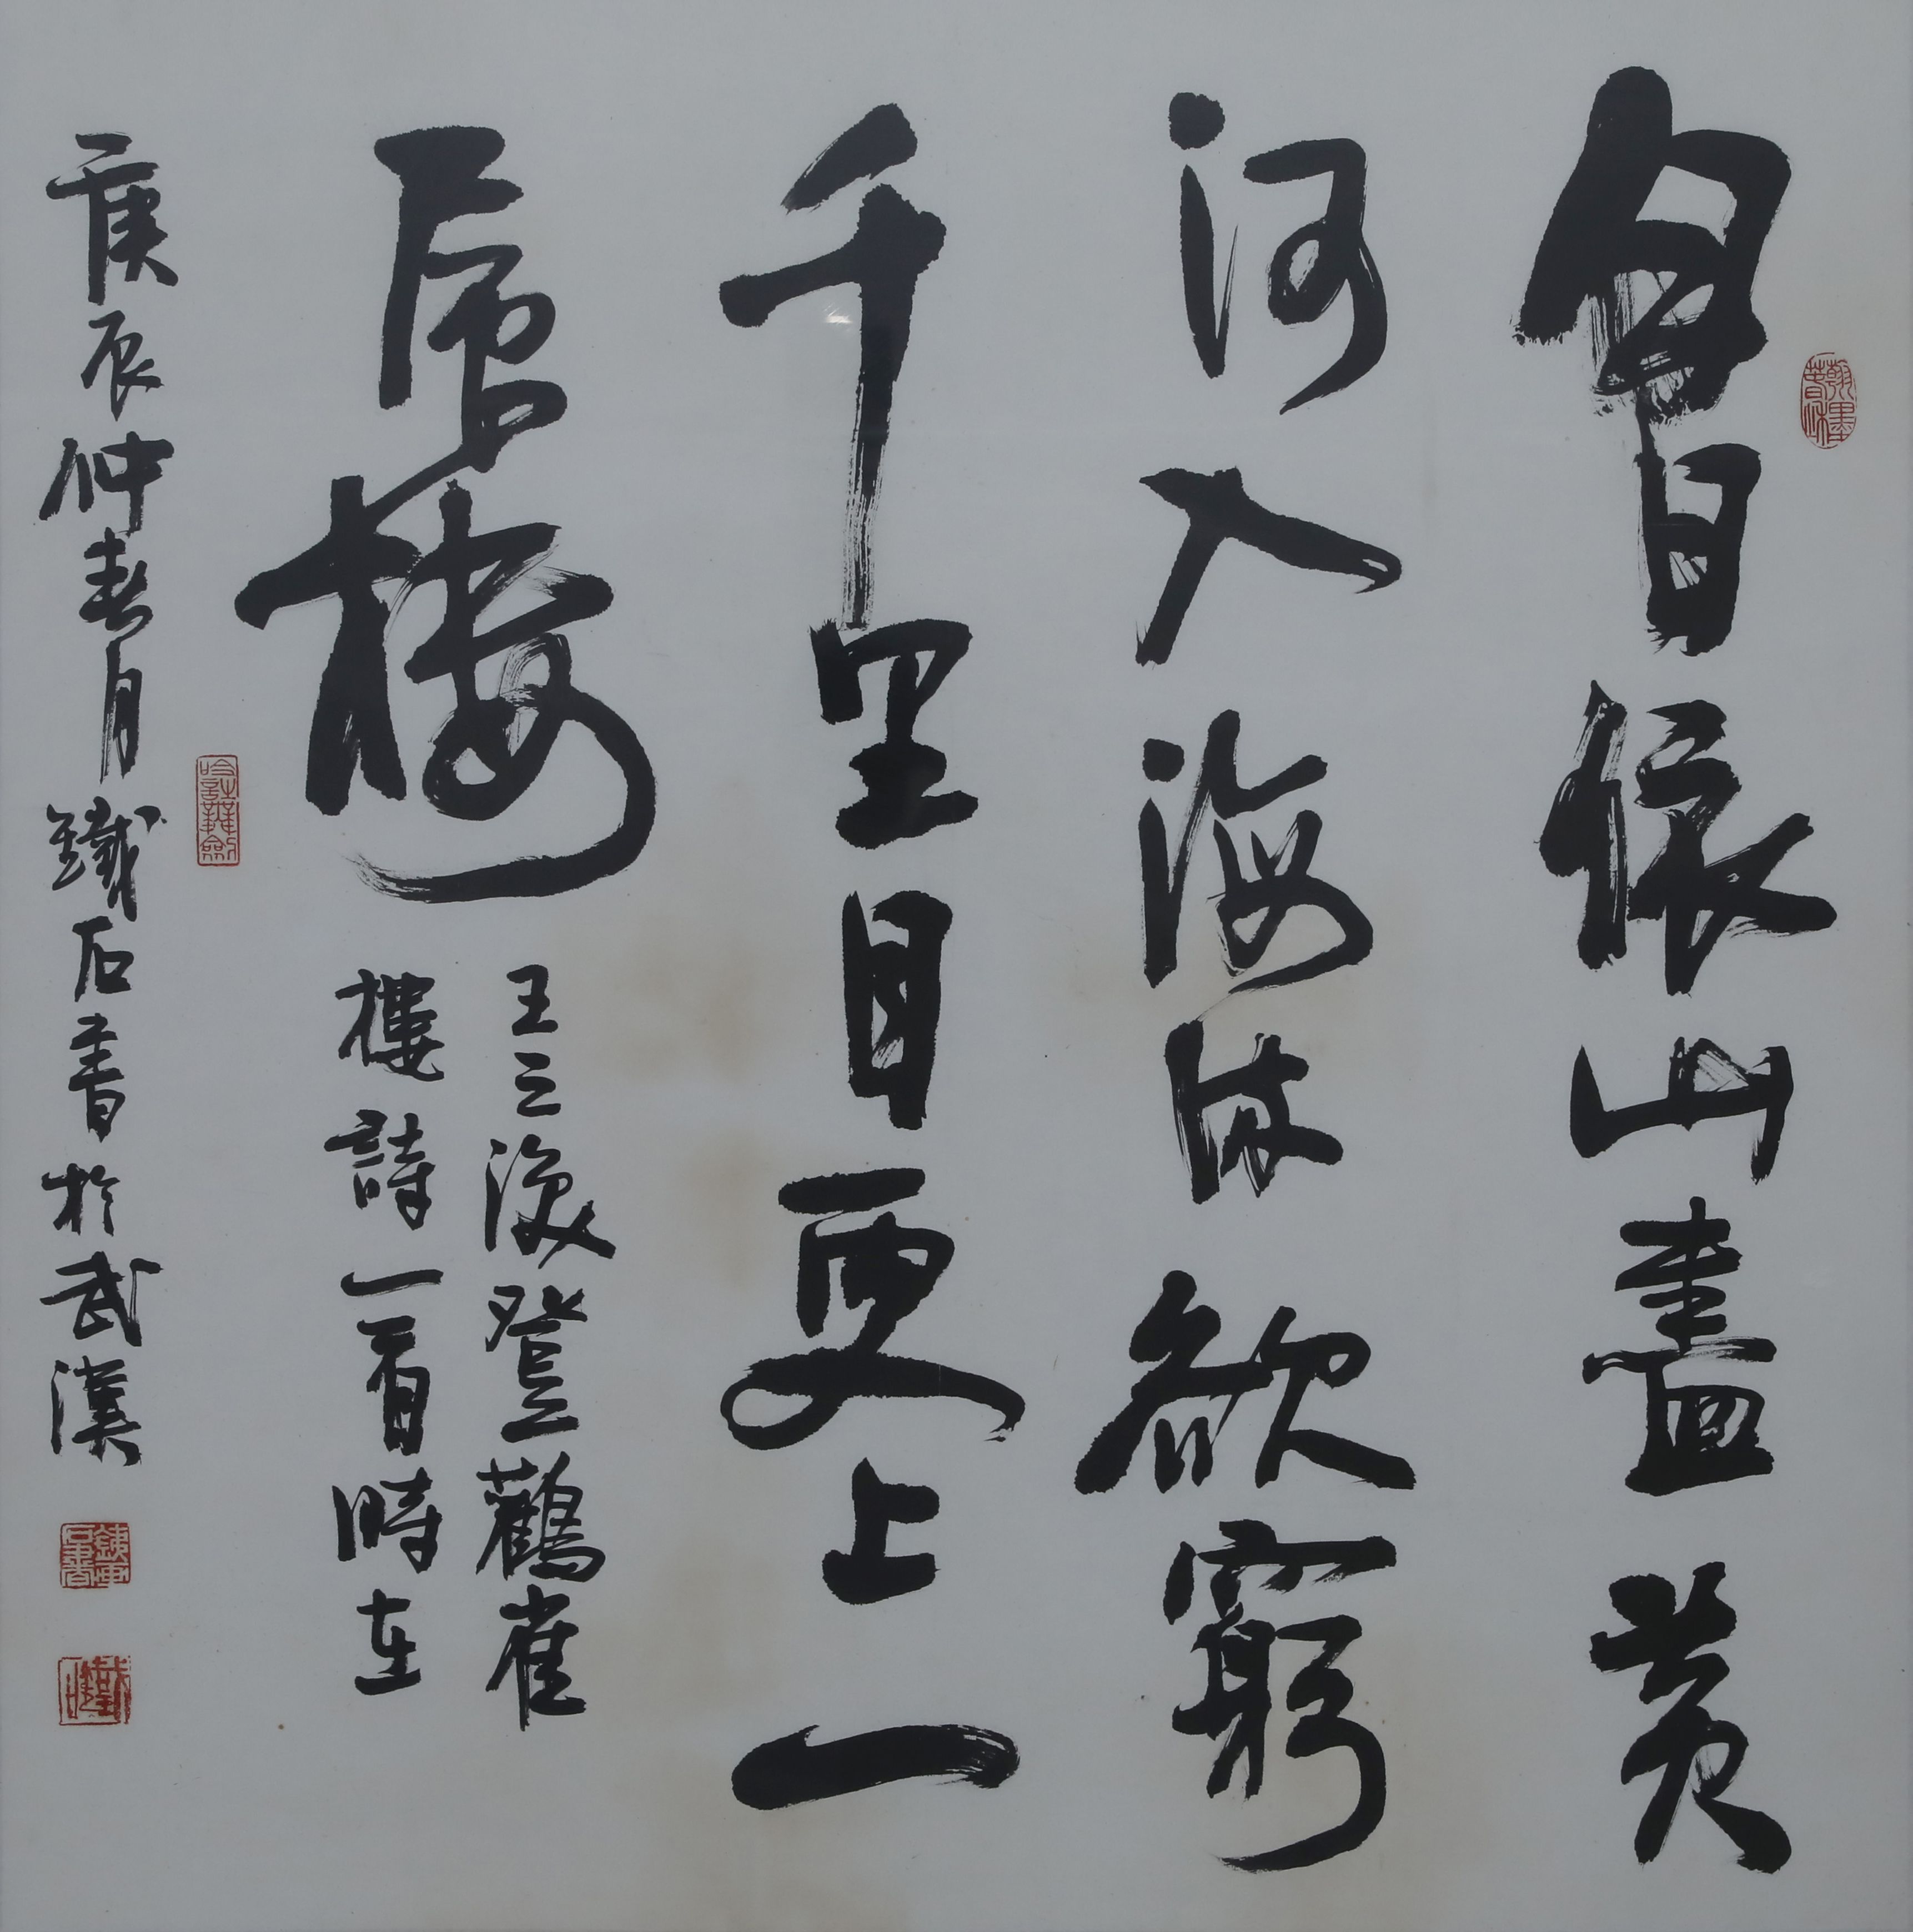 白日依山盡黃
河入海流欲窮
千里目更上一
層樓
王之渙登鸛雀
樓詩一首時在
庚辰仲春月鐵石書於武漢